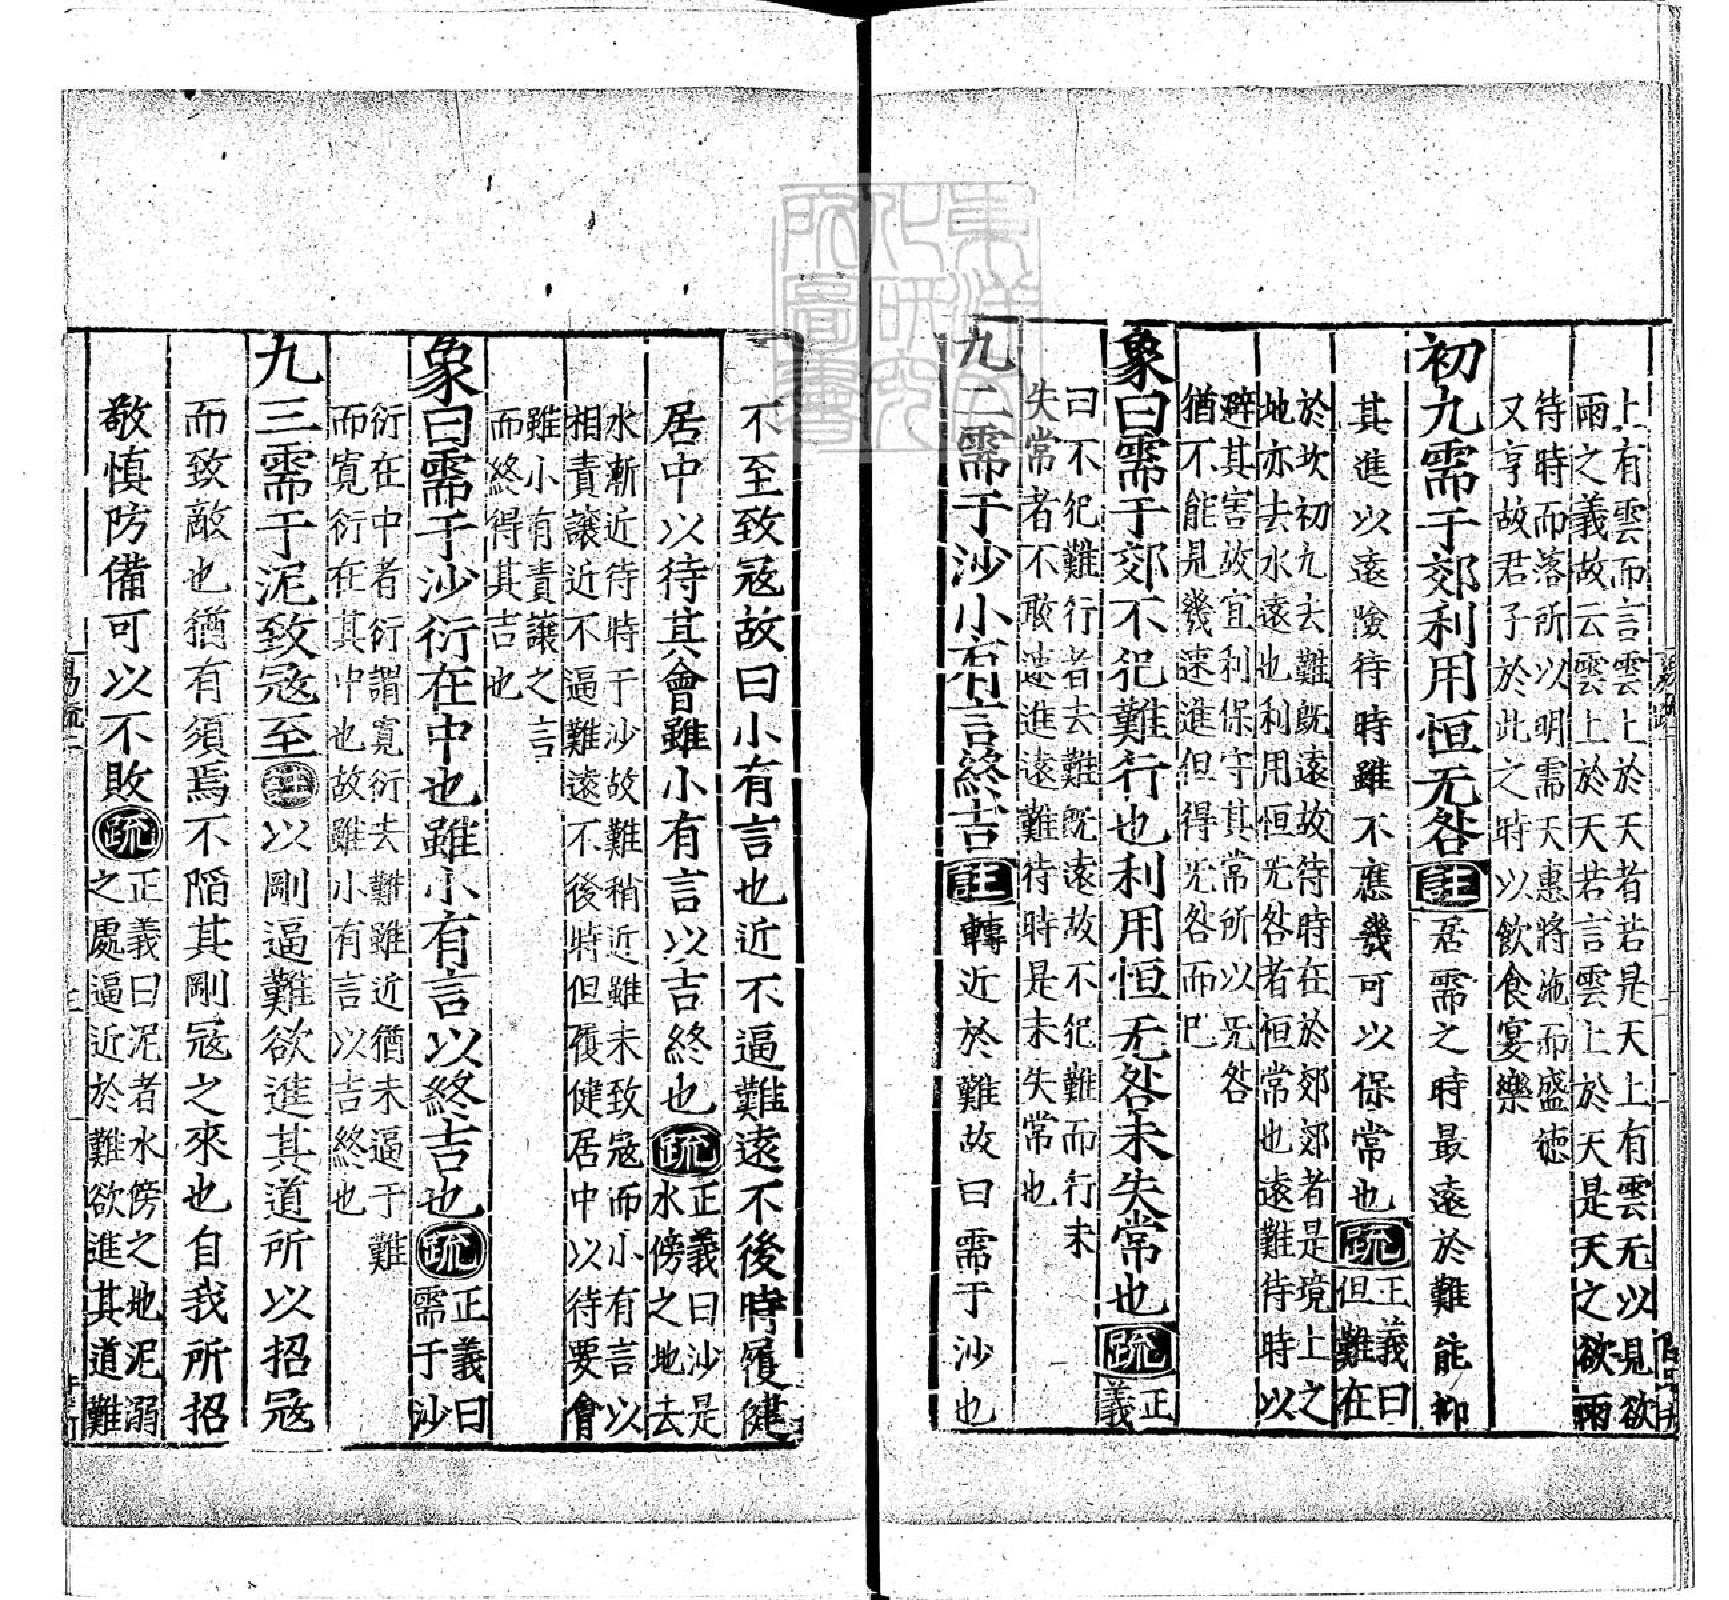 上有雲而言雲上於天者若是天上有雲无以見欲
雨之義故云雲上於天若言雲上於天是天之欲雨
待時而落所以明需天惠將施而盛徳
又亨故君子於此之時以飲食宴樂
初九需于郊利用恒无咎註居需之時最遠於難能抑
其進以遠險待時雖不應幾可以保常也疏正義曰
但難在
於坎初九去難既遠故待時在於郊郊者是境上之
地亦去水遠也利用恒无咎者恒常也遠難待時以
避其害故宜利保守其常所以无咎
猶不能見幾速進但得无咎而巳
象曰需于郊不犯難行也利用恒无咎未失常也疏正
義
曰不犯難行者去難既遠故不犯難而行未
失常者不敢速進遠難待時是未失常也
九二需于沙小有言終吉註轉近於難故曰需于沙也
不至致寇故曰小有言也近不逼難遠不後時履健
居中以待其會雖小有言以吉終也疏正義曰沙是
水傍之地去
水漸近待特于沙故難稍近雖未致寇而小有言以
相責讓近不逼難遠不後時但履健居中以待要會
雖小有責讓之言
而終得其吉也
象曰需于沙衍在中也雖小有言以終吉也疏正義曰
需于沙
衍在中者衍謂寛衍去難雖近猶未逼于難
而寛衍在其中也故雖小有言以吉終也
九三需于泥致寇至註以剛逼難欲進其道所以招寇
而致敵也猶有須焉不陷其剛寇之來也自我所招
敬慎防備可以不敗疏正義曰泥者水傍之地泥溺
之處逼近於難欲進其道難